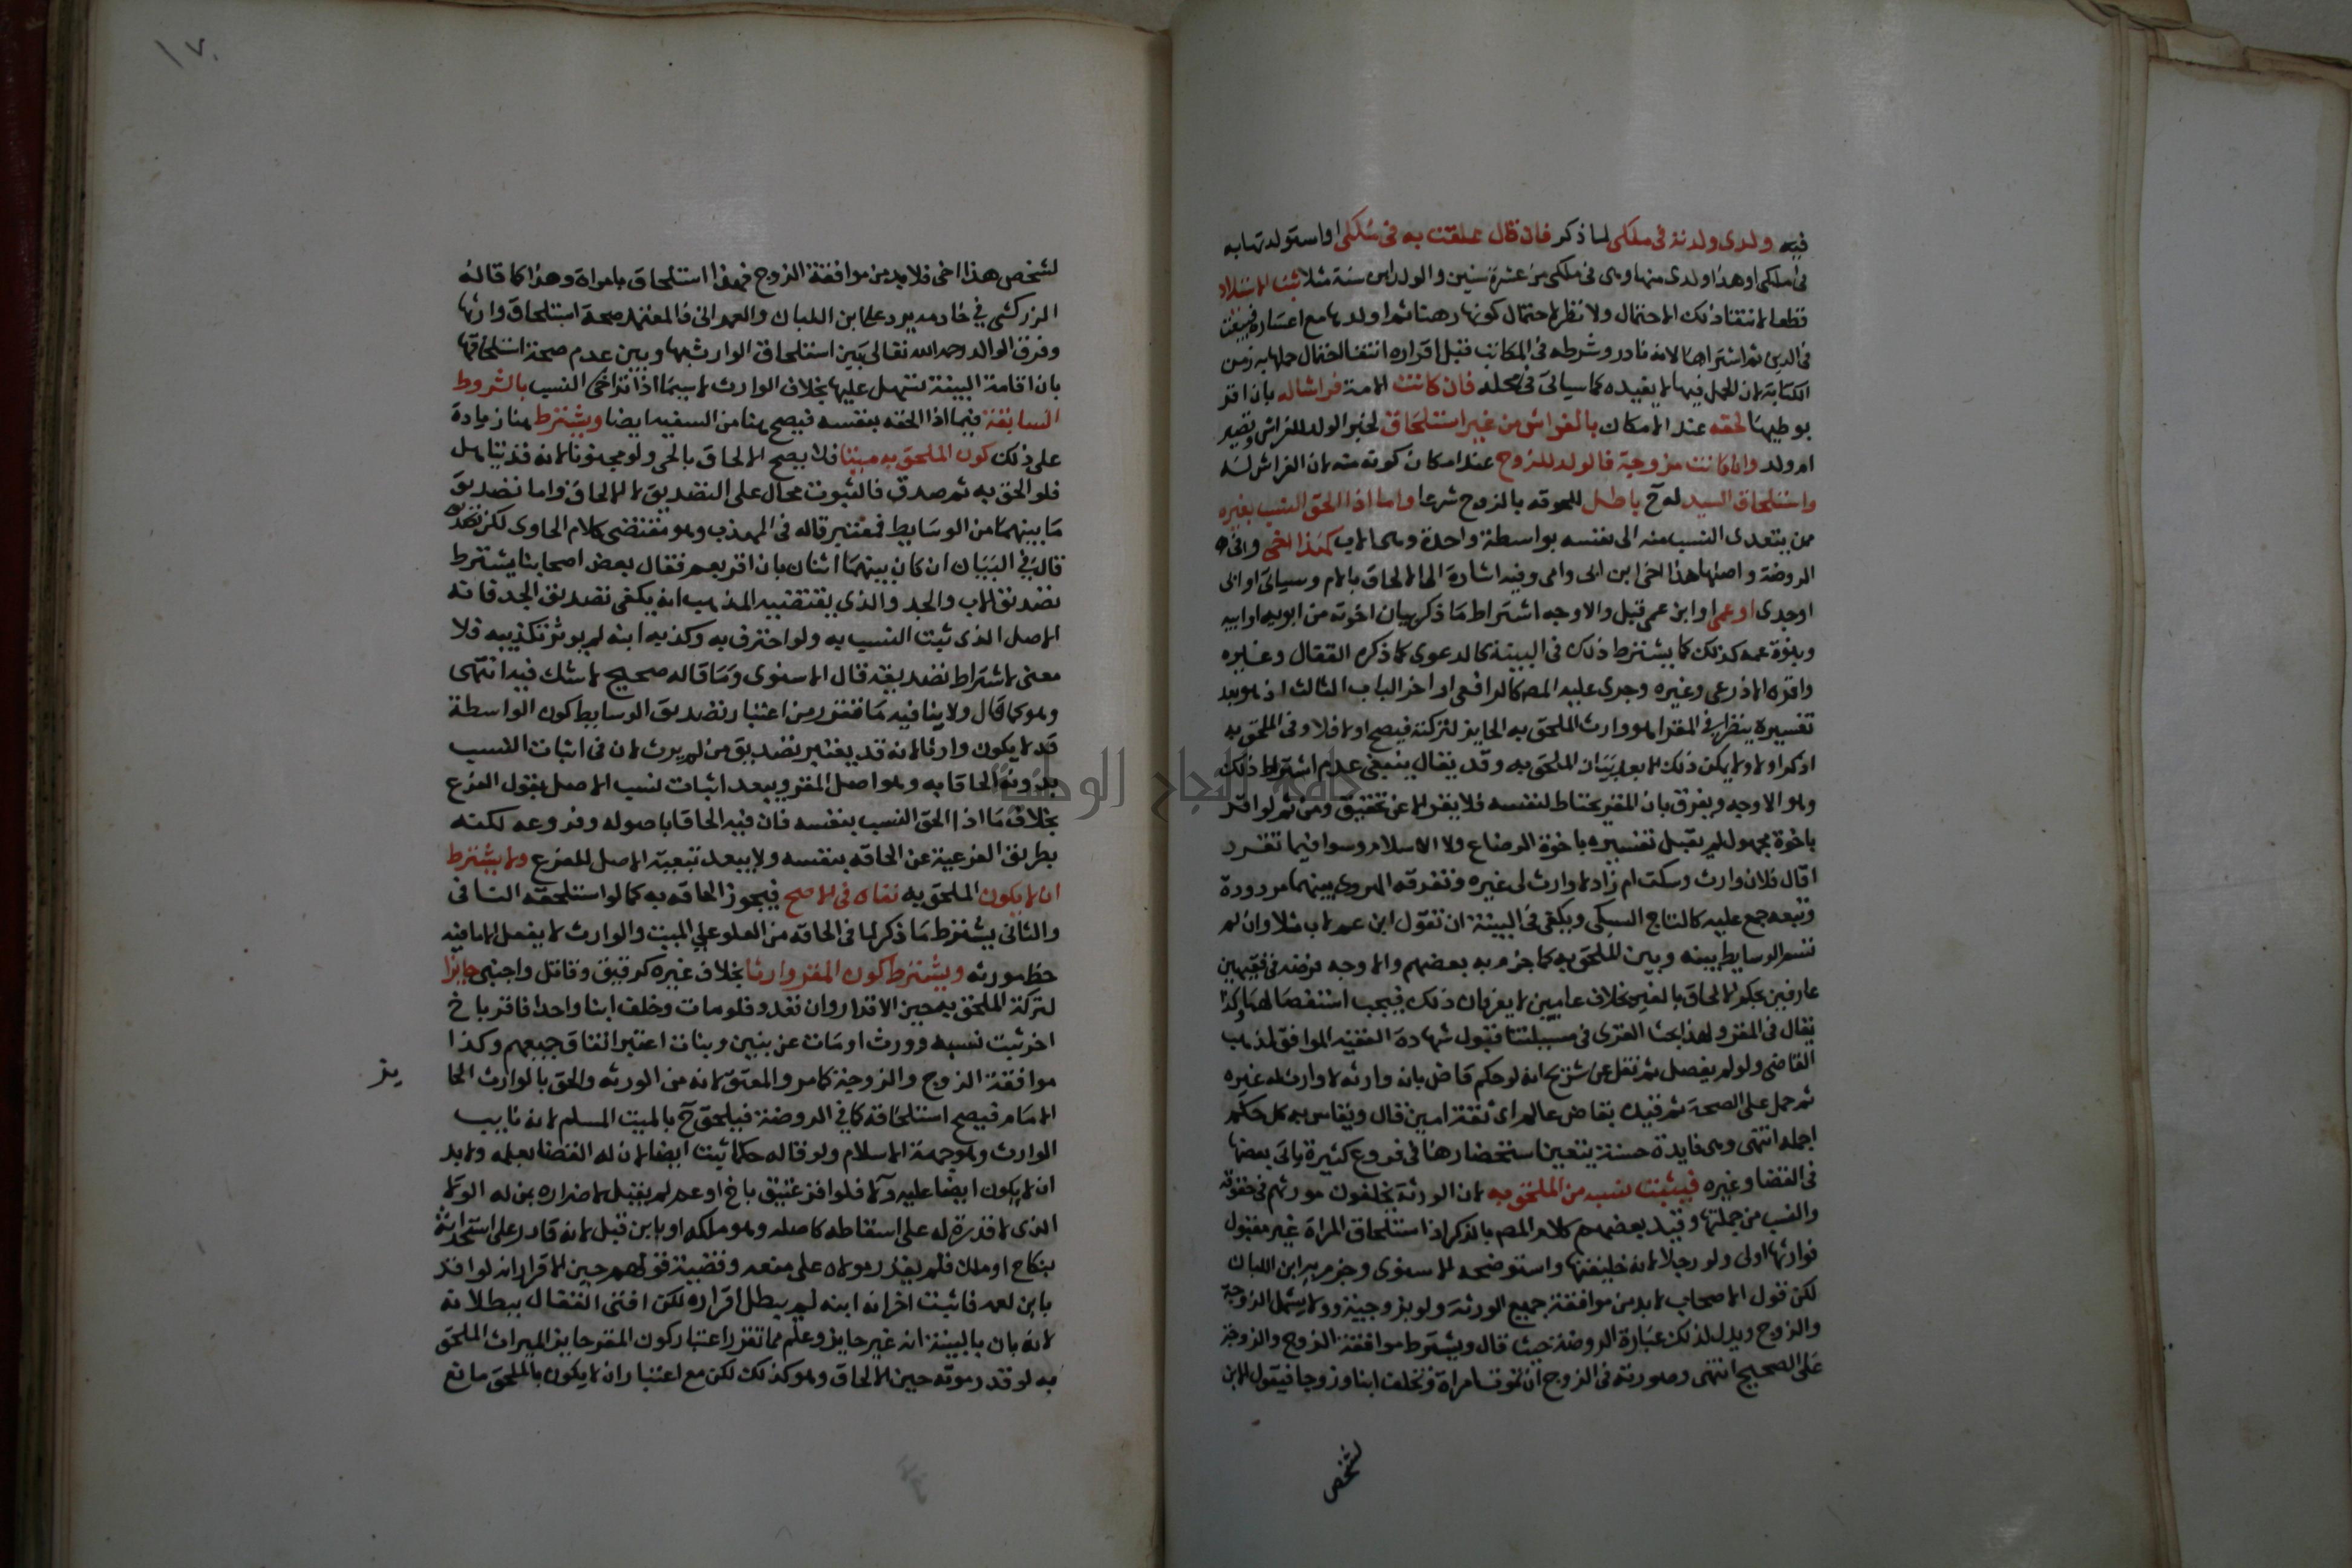 فيه ولدى ولدته فى ملكى لما ذكر فان قال علقت به فى ملكى او استولدتها به
فى ملكى او هذا ولدى منها وهى فى ملكى من عشرة سنين والولد ابن سنة مثلا ثبت الاستيلاد
قطعا لانتفا ذلك الاحتمال ولا نظر لاحتمال كونها رهنا ثم اولدها مع اعساره فبيعت
فى الدين ثم اشتراها لانه نادر وشرطه فى المكاتب قبل اقراره انتفا احتمال حملها به زمن
الكتابة لان الحمل فيها لا يفيده كما سياتى فى محله فان كانت الامة فراشا له بان اقر
بوطيها لحقه عند الامكان بالفراش من غير استلحاق لخبر الولد للفراش وتصير
ام ولد وان كانت مزوجة فالولد للزوج عند امكان كونه منه لان الفراش له
واستلحاق السيد له ح باطل للحوقه بالزوج شرعا واما اذا الحق النسب بغيره
ممن يتعدى النسب منه الى نفسه بواسطة واحدة وهى الاب كهذا اخى وفى
الروضة واصلها هذا اخى ابن ابى وامى وفيه اشارة الى الالحاق بالام وسياتى او ابى
او جدى او عمى او ابن عمى قيل والاوجه اشتراط ما ذكر بيان اخوته من ابويه او ابيه
وبنوة عمه كذلك كما يشترط ذلك فى البينة كالدعوى كما ذكره القفال وغيره
واقره الاذرعى وغيره وجرى عليه المص كالرافعى اواخر الباب الثالث اذ هو بعد
تفسيره ينظر فى المقر اهو وارث الملحق به الحايز لتركته فيصح اولا فلا وفى الملحق به
اذكر اولا ولا يمكن ذلك الا بعد بيان الملحق به وقد يقال ينبغى عدم اشتراط ذلك
وهو الاوجه ويفرق بان المقر يحتاط لنفسه فلا يقر الا عن تحقيق ومن ثم لو اقر
باخوة مجهول لم يقبل تفسيره باخوة الرضاع ولا الاسلام وسوا فيما تقرر
اقال فلان وارث وسكت ام زاد لا وارث لى غيره وتفرقه الهروى بينهما مردودة
وتبعه جمع عليه كالتاج السبكى ويكفى فى البينة ان تقول ابن عم لاب مثلا وان لم
تسم الوسايط بينه وبين الملحق به كما جزم به بعضهم والاوجه فرضه فى فقيهين
عارفين بحكم الالحاق بالغير بخلاف عاميين لا يعرفان ذلك فيجب استفصالهما وكذا
يقال فى المقر ولهذا بحث الغزى فى مسيلتنا قبول شهادة الفقيه الموافق لمذهب
القاضى ولو لم يفصل ثم نقل عن شريح انه لو حكم قاض بانه وارثه لا وارث له غيره
ثم حمل على الصحة ثم قيد بقاض عالم اى ثقة امين قال ويقاس به كل حكم
اجمله انتهى وهى فايدة حسنة يتعين استحضارها فى فروع كثيرة ياتى بعضها
فى القضا وغيره فيثبت نسبه من الملحق به لان الورثة يخلفون مورثهم فى حقوقه
والنسب من جملتها وقيد بعضهم كلام المص بالذكر اذ استلحاق المراة غير مقبول
فوارثها اولى ولو رجلا لانه خليفتها واستوضحه الاسنوى وجزم به ابن اللبان
لكن قول الاصحاب لابد من موافقة جميع الورثة ولو بزوجية وولا يشمل الزوجة
والزوج ويدل لذلك عبارة الروضة حيث قال ويشترط موافقة الزوج والزوجة
على الصحيح انتهى وصورته فى الزوج ان تموت امراة وتخلف ابنا وزوجا فيقول الابن
لشخص
١٧٠
لشخص هذا اخى فلا بد من موافقة الزوج فهذا استلحاق بامراة وهذا كما قاله
الزركشى في خادمه يرد على ابن اللبان والعمرانى فالمعتمد صحة استلحاق وارثها
وفرق الوالد رحمه الله تعالى بين استلحاق الوارث بها وبين عدم صحة استلحاقها
بان اقامة البينة تسهل عليها بخلاف الوارث لا سيما اذا تراخى النسب بالشروط
السابقة فيما اذا الحقه بنفسه فيصح هنا من السفيه ايضا ويشترط هنا زيادة
على ذلك كون الملحق به ميتا فلا يصح الالحاق بالحى ولو مجنونا لانه قد يتاهل
فلو الحق به ثم صدق فالثبوت محال على التصديق لا الالحاق واما تصديق
ما بينهما من الوسايط فمعتبر قاله فى المهذب وهو مقتضى كلام الحاوى لكن
قال فى البيان ان كان بينهما اثنان بان اقر بعم فقال بعض اصحابنا يشترط
تصديق الاب والجد والذى يقتضيه المذهب انه يكفى تصديق الجد فانه
الاصل الذى ثبت النسب به ولو اعترف به وكذبه ابنه لم يوثر تكذيبه فلا
معنى لاشتراط تصديقه قال الاسنوى وما قاله صحيح لا شك فيه انتهى
وهو كما قال ولا ينافيه ما تقرر من اعتبار تصديق الوسايط كون الواسطة
قد لا يكون وارثا لانه قد يعتبر تصديق من لم يرث لان فى اثبات النسب
بدونه الحاقا به وهو اصل المقر ويبعد اثبات نسب الاصل بقول الفرع
بخلاف ما اذا الحق النسب بنفسه فان فيه الحاقا باصوله وفروعه لكنه
بطريق الفرعية عن الحاقه بنفسه ولا يبعد تبعية الاصل للفرع ولا يشترط
ان لا يكون الملحق به نفاه فى الاصح فيجوز الحاقه به كما لو استلحقه النافى
والثانى يشترط ما ذكر لما فى الحاقه من العار على الميت والوارث لا يفعل الا ما فيه
حظ مورثه ويشترط كون المقر وارثا بخلاف غيره كرقيق وقاتل واجنبى حايزا
لتركة الملحق به حين الاقرار وان تعدد فلو مات وخلف ابنا واحدا فاقر باخ
اخر ثبت نسبه وورث او مات عن بنين وبنات اعتبر اتفاق جميعهم وكذا
موافقة الزوج والزوجة كما مر والمعتق لانه من الورثه والحق بالوارث الحا
يز
الامام فيصح استلحاقه كما في الروضة فيلحق ح بالميت المسلم لانه نايب
الوارث وهو جهة الاسلام ولو قاله حكما ثبت ايضا لان له القضا بعلمه ولا بد
ان لا يكون ايضا عليه ولا فلو اقر عتيق باخ او عم لم يقبل لاضراره بمن له الولا
الذى لا قدرة له على اسقاطه كاصله وهو ملكه او بابن قبل لانه قادر على استحداثه
بنكاح او ملك فلم يقدر مولاه على منعه وقضية قولهم حين الاقرار انه لو اقر
بابن لعمه فاثبت اخر انه ابنه لم يبطل اقراره لكن افتى القفال ببطلانه
لانه بان بالبينة انه غير حايز وعلم مما تقرر اعتبار كون المقر حايز الميراث الملحق
به لو قدر موته حين الالحاق وهو كذلك لكن مع اعتبار ان لا يكون بالملحق مانع
جامعة النجاح الوطنية